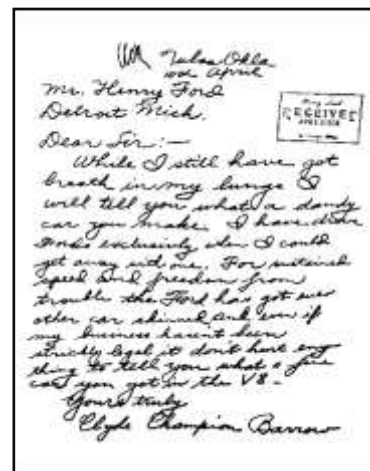 Tulsa Okla
10th April
Mr. Henry Ford
Detroit Mich.
RECEIVED
Dear Sir:—
While I still have got
breath in my lungs I
will tell you what a dandy
car you make. I have drove
Fords exclusively when I could
get away with one. For sustained
speed and freedom from
trouble the Ford has got ever
other car skinned and even if
my business hasen't been
strickly legal it don't hurt eny
thing to tell you what a fine
car you got in the V8 -
Yours truly
Clyde Champion Barrow